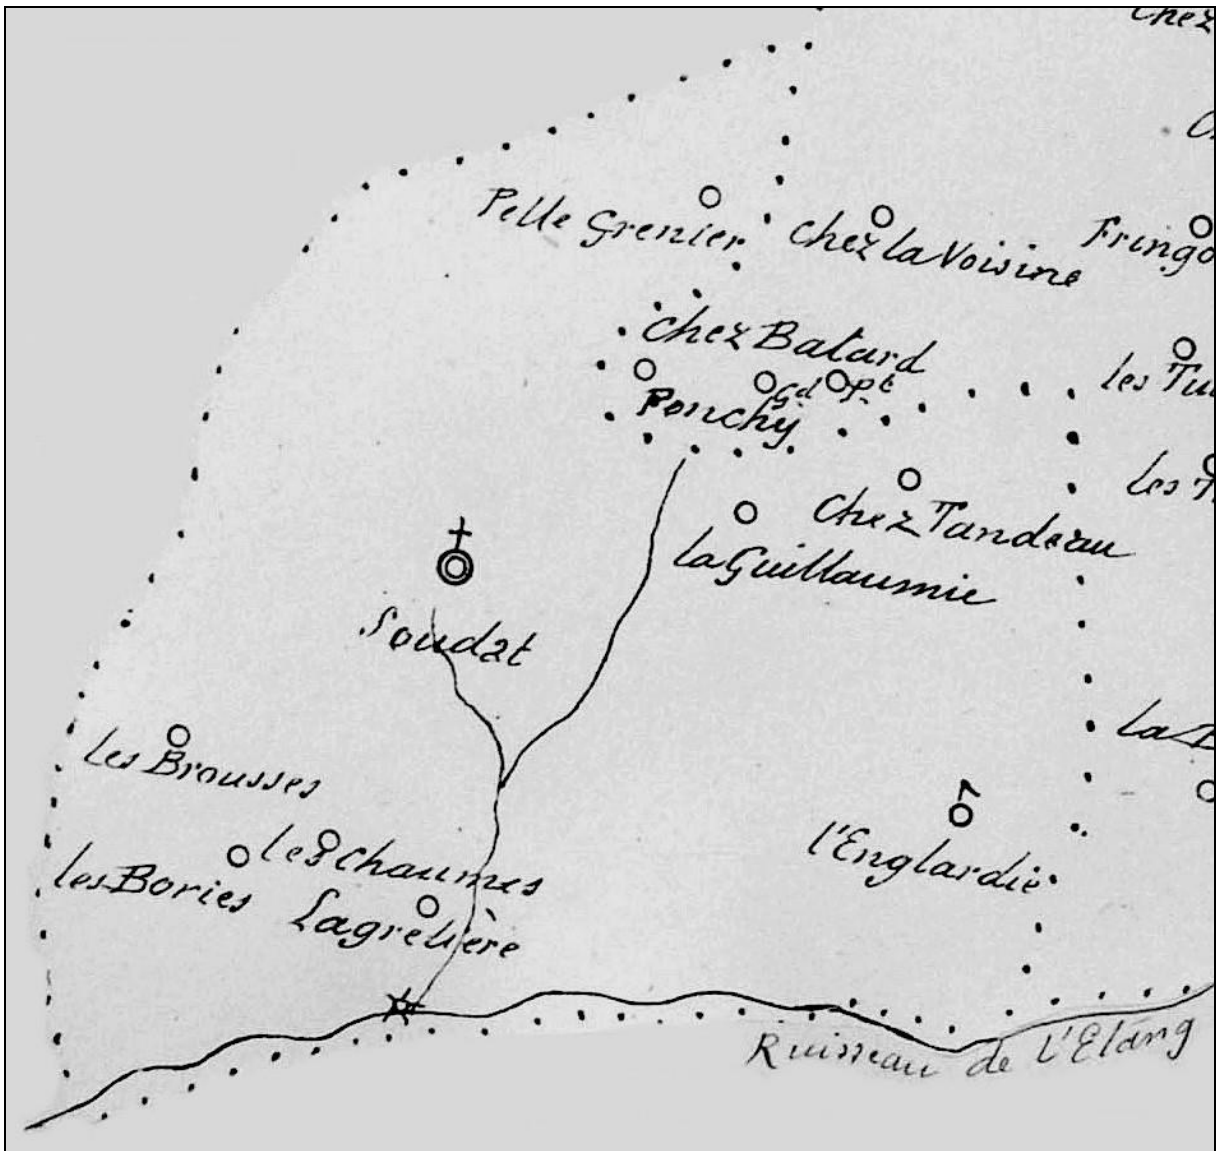 Chez
Pelle Grenier
Chez la Voisine
Fringo
Chez Batard
Gd Pt
les Tu
Ponchy
les T
Chez Tandeau
la Guillaumie
Soudat
la B
les Brousses
l'Englardie
les Chaumes
les Bories
Lagrelière
Ruisseau de l'Etang